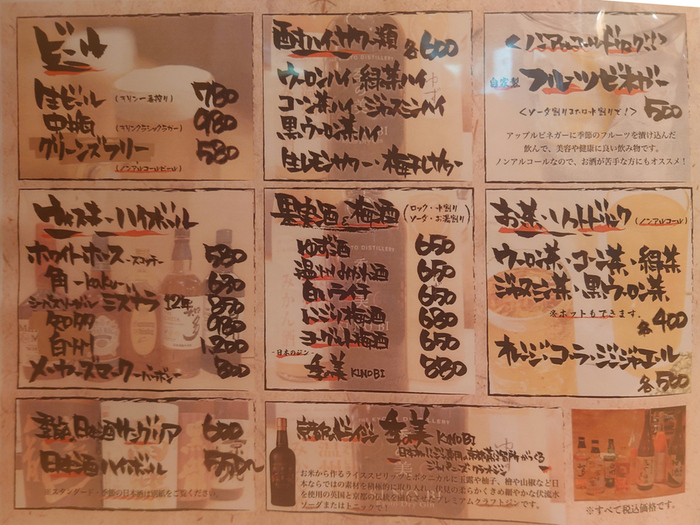 ビール
生ビール (キリン一番搾り) 780
中瓶 (キリンクラシックラガー) 880
グリーンズフリー 580
(ノンアルコールビール)
酎ハイ・サワー類 各600
ウーロンハイ・緑茶ハイ
コーン茶ハイ・ジャスミンハイ
黒ウーロン茶ハイ
生レモンサワー・梅干しサワー
<ノンアルコールドリンク!!>
自家製 フルーツビネガー
<ソーダ割りまたは水割りで!> 500
アップルビネガーに季節のフルーツを漬け込んだ
飲んで、美容や健康に良い飲み物です。
ノンアルコールなので、お酒が苦手な方にもオススメ!
ウィスキー・ハイボール
ホワイトホース -スコッチ-
角 -サントリー-
シーバスリーガル ミズナラ 12年
知多
白州
メーカーズマーク -バーボン-
果実酒・梅酒 (ロック・水割り ソーダ・お湯割り)
650
650
650
ジンジャー梅酒 650
ヨーグルト梅酒 650
-日本のジン-
季の美 KINOBI 880
お茶・ソフトドリンク (ノンアルコール)
ウーロン茶・コーン茶・緑茶
ジャスミン茶・黒ウーロン茶
※ホットもできます。
各400
オレンジ・コーラ・ジンジャエール
各500
日本酒サングリア 680
日本酒ハイボール
※スタンダード・季節の日本酒は別紙をご覧ください。
京都ドライジン 季の美 KINOBI
お米から作るライススピリッツとボタニカルに玉露や柚子、檜や山椒など日
本ならではの素材を積極的に取り入れ、伏見の柔らかくきめ細やかな伏流水
を使用の英国と京都の伝統を融合させたプレミアムクラフトジンです。
ソーダまたはトニックで!
※すべて税込価格です。